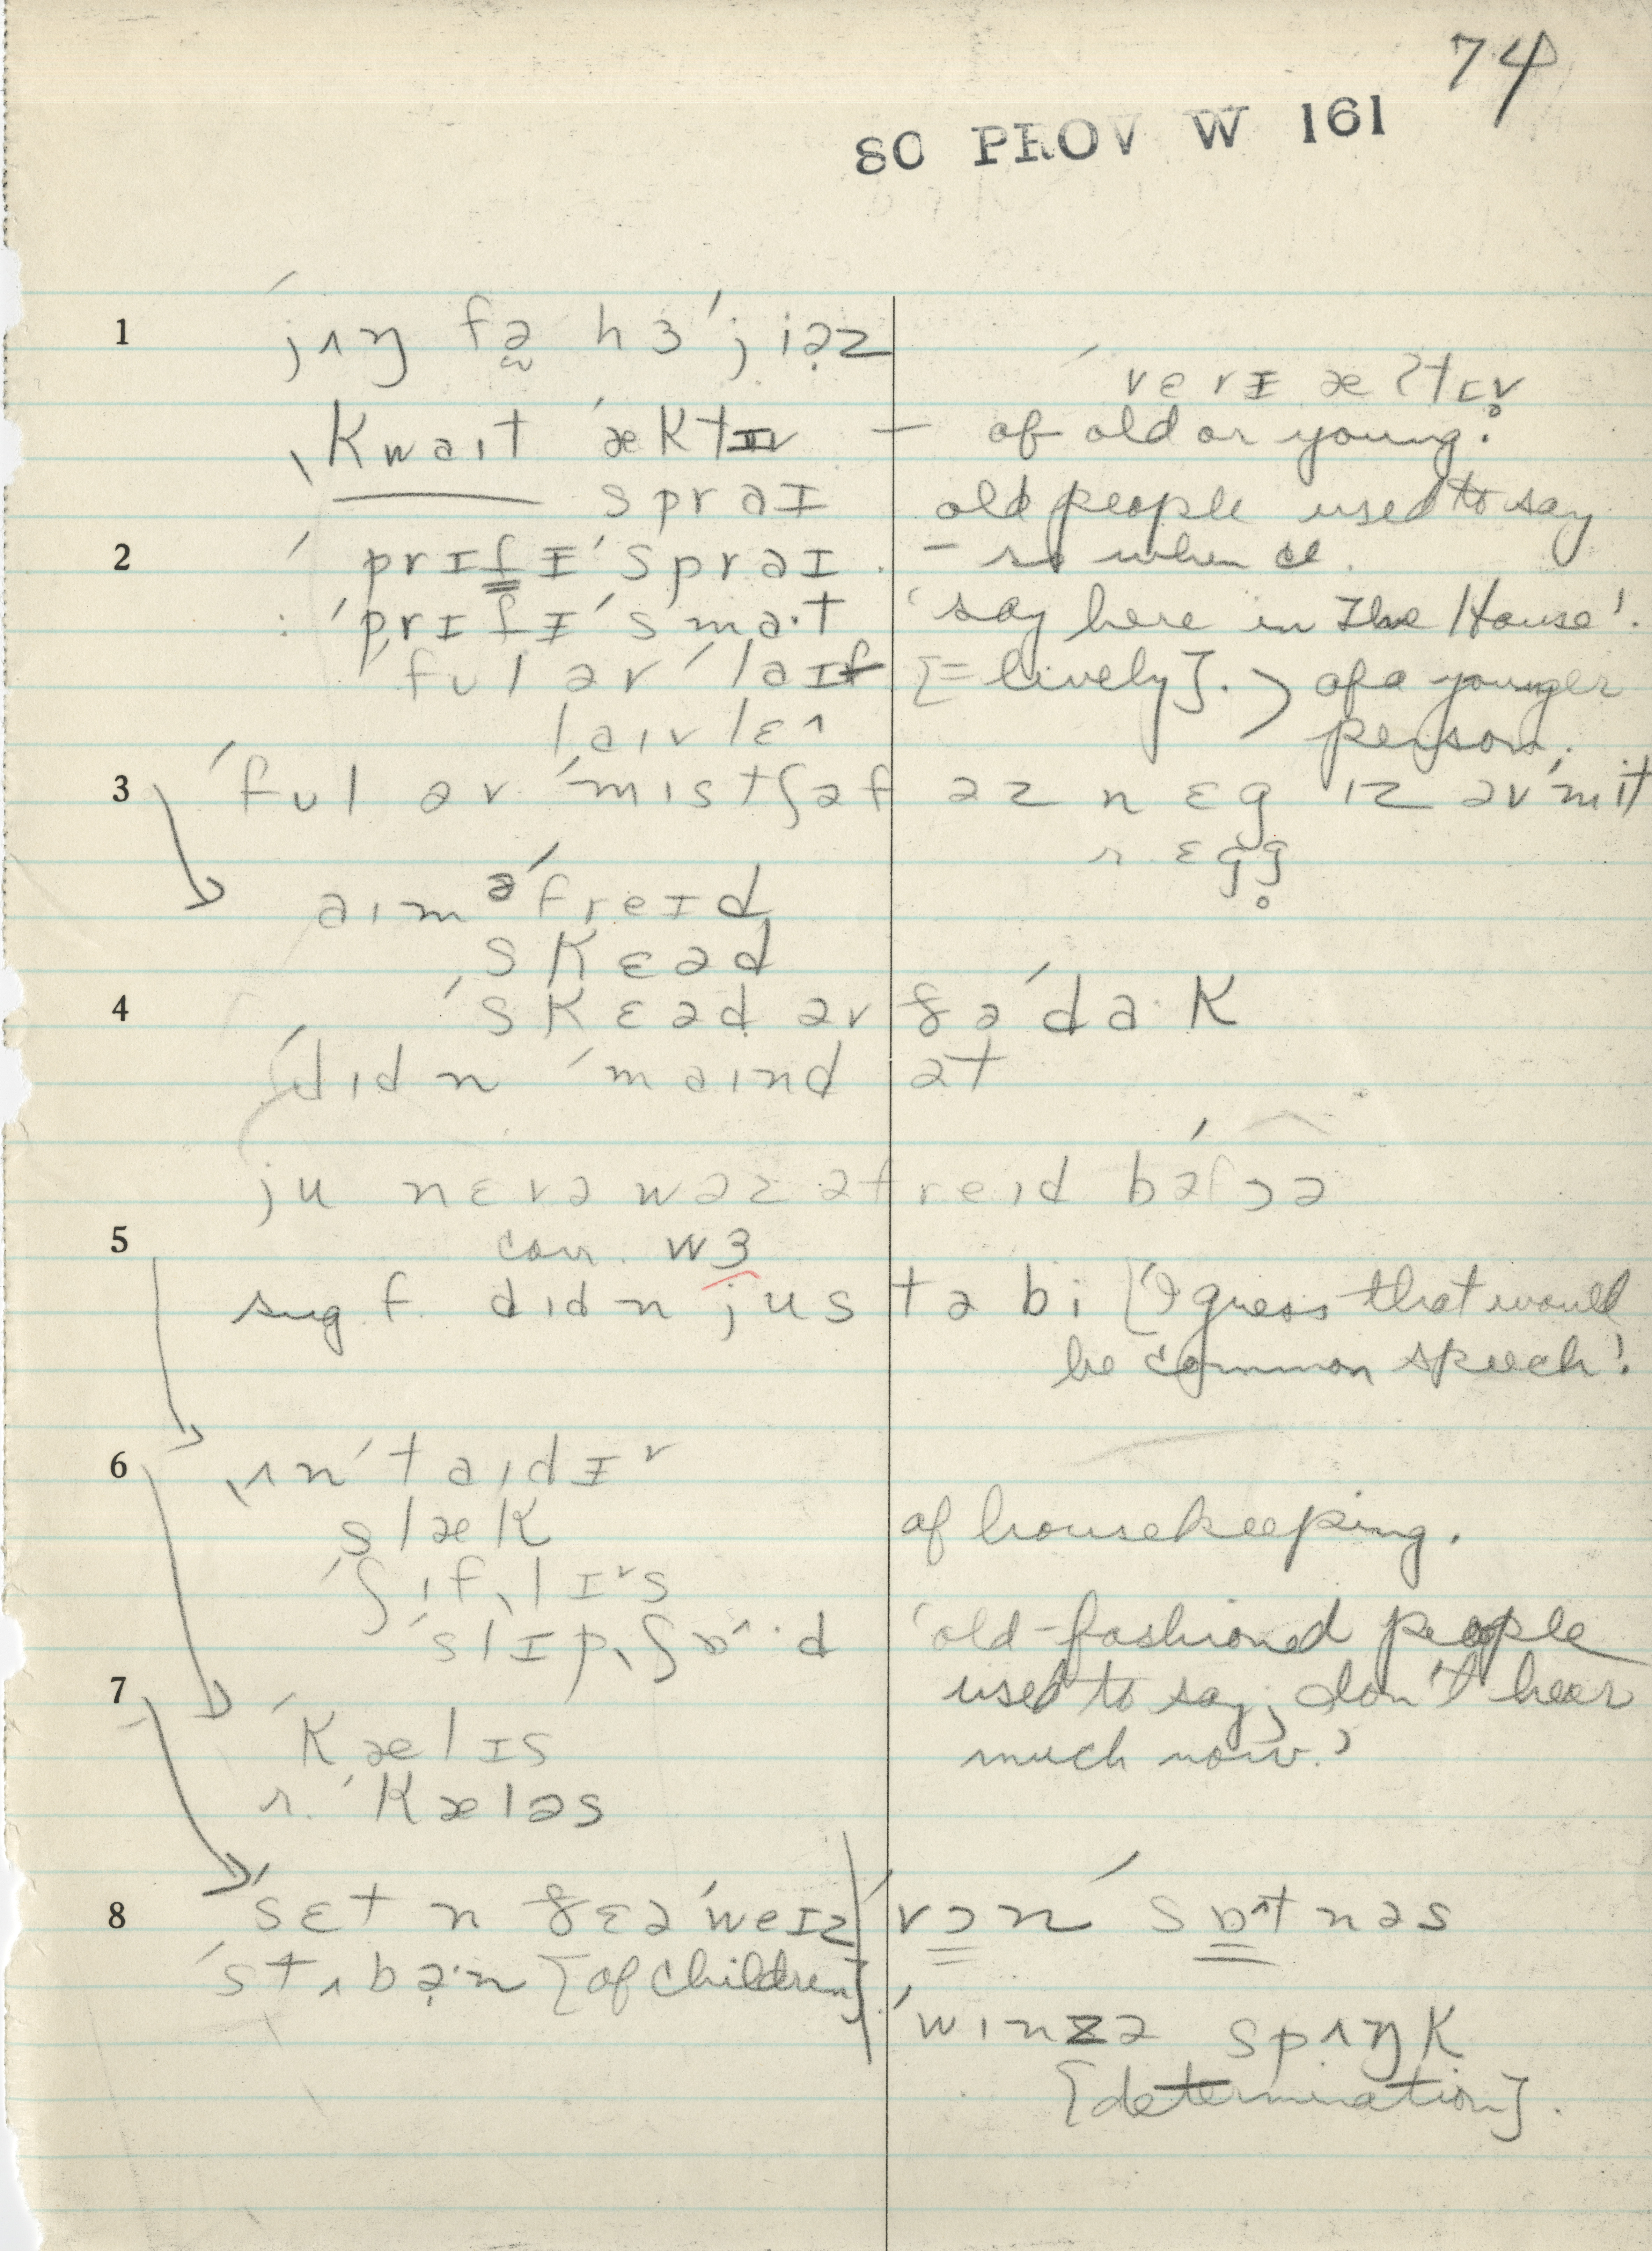 74
SO PROV W 161
1 ˈjʌŋ fə hɜˈjiəz
verɪ æʔtɪv̥
ˌkwaɪt ˈæktɪv – of old or young.
spraɪ old people used to say
2 ˈprɪfɪˈspraɪ. – so when cl.
: ˈprɪfɪˈsmaˑt 'say here in The House'.
ˈfʊl əv ˈlaɪf [= lively]. > of a younger
laɪvlɛ^ person.
3 ˈfʊl əv ˈmɪstʃəf əz n ɛg ɪz əv mit
r. ɛgg̥
aɪm əˈfreɪd
skɛəd
4 ˈskɛəd əv ðəˈdaˑk
ˈdɪdn ˈmaɪnd ət
ju nɛvə wəz əfreɪd bəˈfɔə
5 corr. wɜ
sug f. dɪdn justə bi ['I guess that would
be common speech'.
6 ˌʌnˈtaɪdɪ˅
slæk of housekeeping.
ˈʃɪfˌlɪ˅s
ˈslɪpˌʃɒ^ˑd 'old-fashioned people
7 used to say; don't hear
ˈkælɪs much now.'
r. ˈkæləs
8 ˈsɛt n ðɛəˈweɪz ˈvɔn ˈsɒ^tnəs
ˈstʌbə̣ˑn [of children].
ˈwɪnzə spʌŋk
[determination].